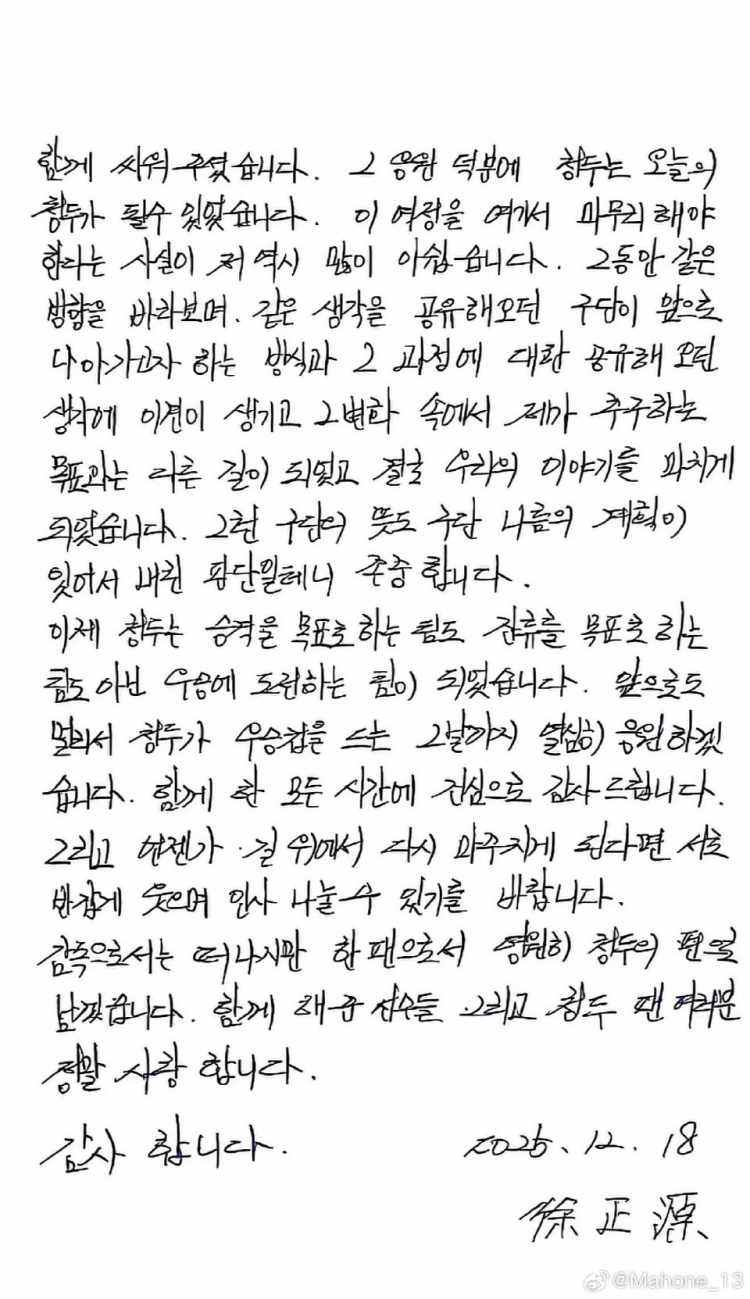 함께 싸워 주셨습니다. 그 응원 덕분에 청두는 오늘의
청두가 될수 있었습니다. 이 여정을 여기서 마무리 해야
한다는 사실이 저 역시 많이 아쉽습니다. 그동안 같은
방향을 바라보며. 같은 생각을 공유해오던 구단이 앞으로
나아가고자 하는 방식과 그 과정에 대한 공유해 오던
생각에 이견이 생기고 그변화 속에서 제가 추구하는
목표과는 다른 길이 되었고 결국 우리의 이야기를 마치게
되었습니다. 그런 구단의 뜻도 구단 나름의 계획이
있어서 내린 판단일테니 존중 합니다.
이제 청두는 승격을 목표로 하는 팀도 잔류를 목표로 하는
팀도 아닌 우승에 도전하는 팀이 되었습니다. 앞으로도
멀리서 청두가 우승컵을 드는 그날까지 열심히 응원하겠
습니다. 함께 한 모든 시간에 진심으로 감사 드립니다.
그리고 언젠가 길 위에서 다시 마주치게 된다면 서로
반갑게 웃으며 인사 나눌수 있기를 바랍니다.
감독으로서는 떠나지만 한 팬으로서 영원히 청두의 편으로
남겠습니다. 함께 해준 선수들 그리고 청두 팬 여러분
정말 사랑 합니다.
감사 합니다. 2025. 12. 18
徐正源
@Mahone_13